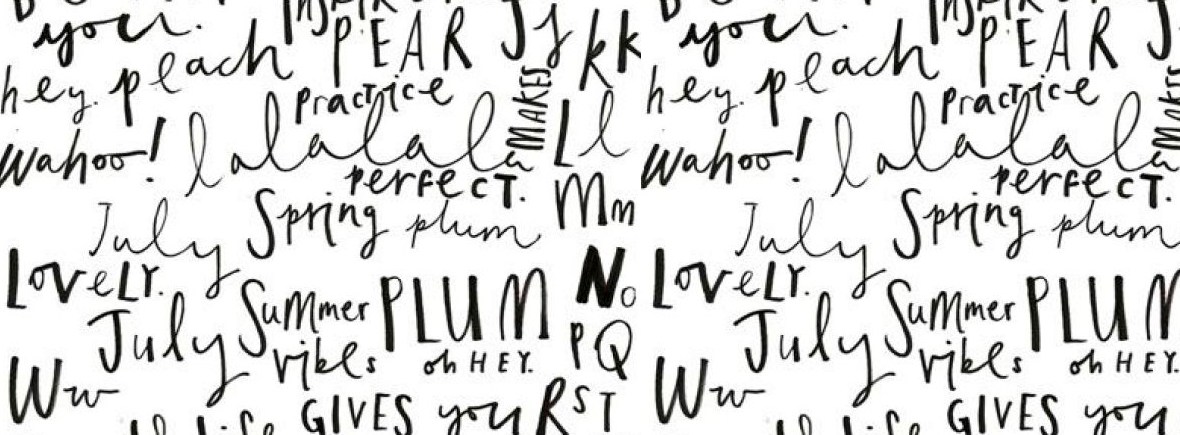 you.
PEAR
Jj
kk
you.
PEAR
hey. peach
hey. peach
practice
practice
MAKES
MAKES
Wahoo!
lalalala
Ll
Wahoo!
lalalala
PERFECT.
PERFECT.
Mm
July
Spring
plum
July
Spring
plum
LOVELY.
No
LOVELY.
Summer
PLUM
Summer
July
PQ
July
vibes
oh HEY.
vibes
oh HEY.
Ww
Ww
GIVES you
RST
GIVES you